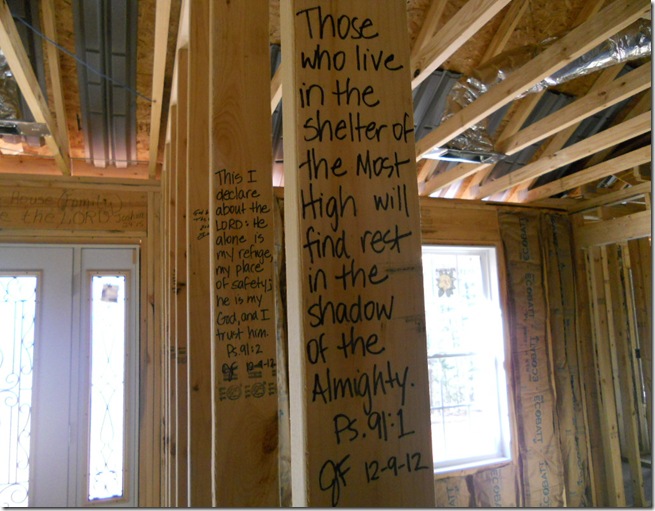 Those
who live
in the
shelter of
the Most
High will
find rest
in the
shadow
of the
Almighty.
Ps. 91:1
JF 12-9-12
This I
declare
about the
LORD: He
alone is
my refuge,
my place
of safety;
he is my
God, and I
trust him.
Ps. 91:2
JF 12-9-12
House (family)
the LORD
ECOBATT
ECOBATT
ECOBATT